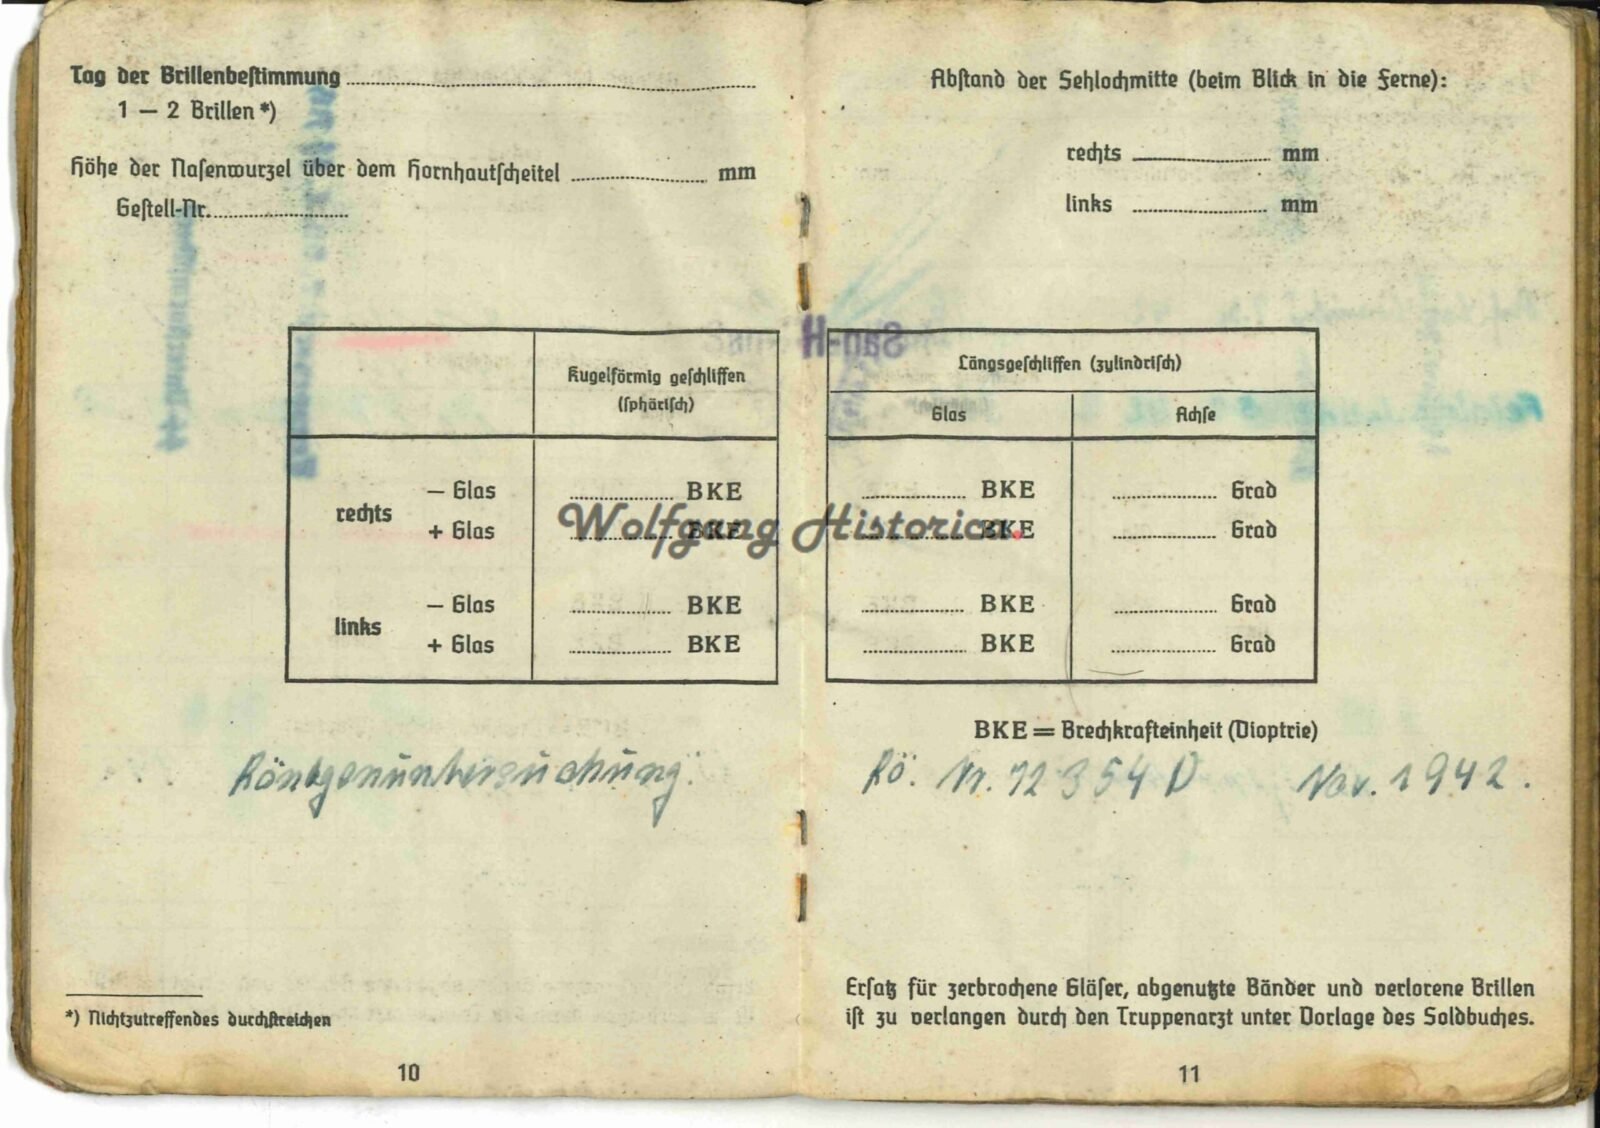 Tag der Brillenbestimmung
1 — 2 Brillen *)
Höhe der Nasenwurzel über dem Hornhautscheitel mm
Gestell-Nr.
Kugelförmig geschliffen
(sphärisch)
rechts
— Glas BKE
+ Glas BKE
links
— Glas BKE
+ Glas BKE
Röntgenuntersuchung.
*) Nichtzutreffendes durchstreichen
10
Abstand der Sehlochmitte (beim Blick in die Ferne):
rechts mm
links mm
Längsgeschliffen (zylindrisch)
Glas Achse
BKE Grad
BKE Grad
BKE Grad
BKE Grad
BKE = Brechkrafteinheit (Dioptrie)
Rö. Nr. 12354 D Nov. 1942.
Ersatz für zerbrochene Gläser, abgenutzte Bänder und verlorene Brillen
ist zu verlangen durch den Truppenarzt unter Vorlage des Soldbuches.
11
Wolfgang Historica.